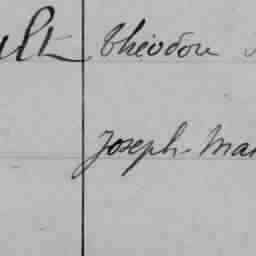 théodore
Joseph-Mar